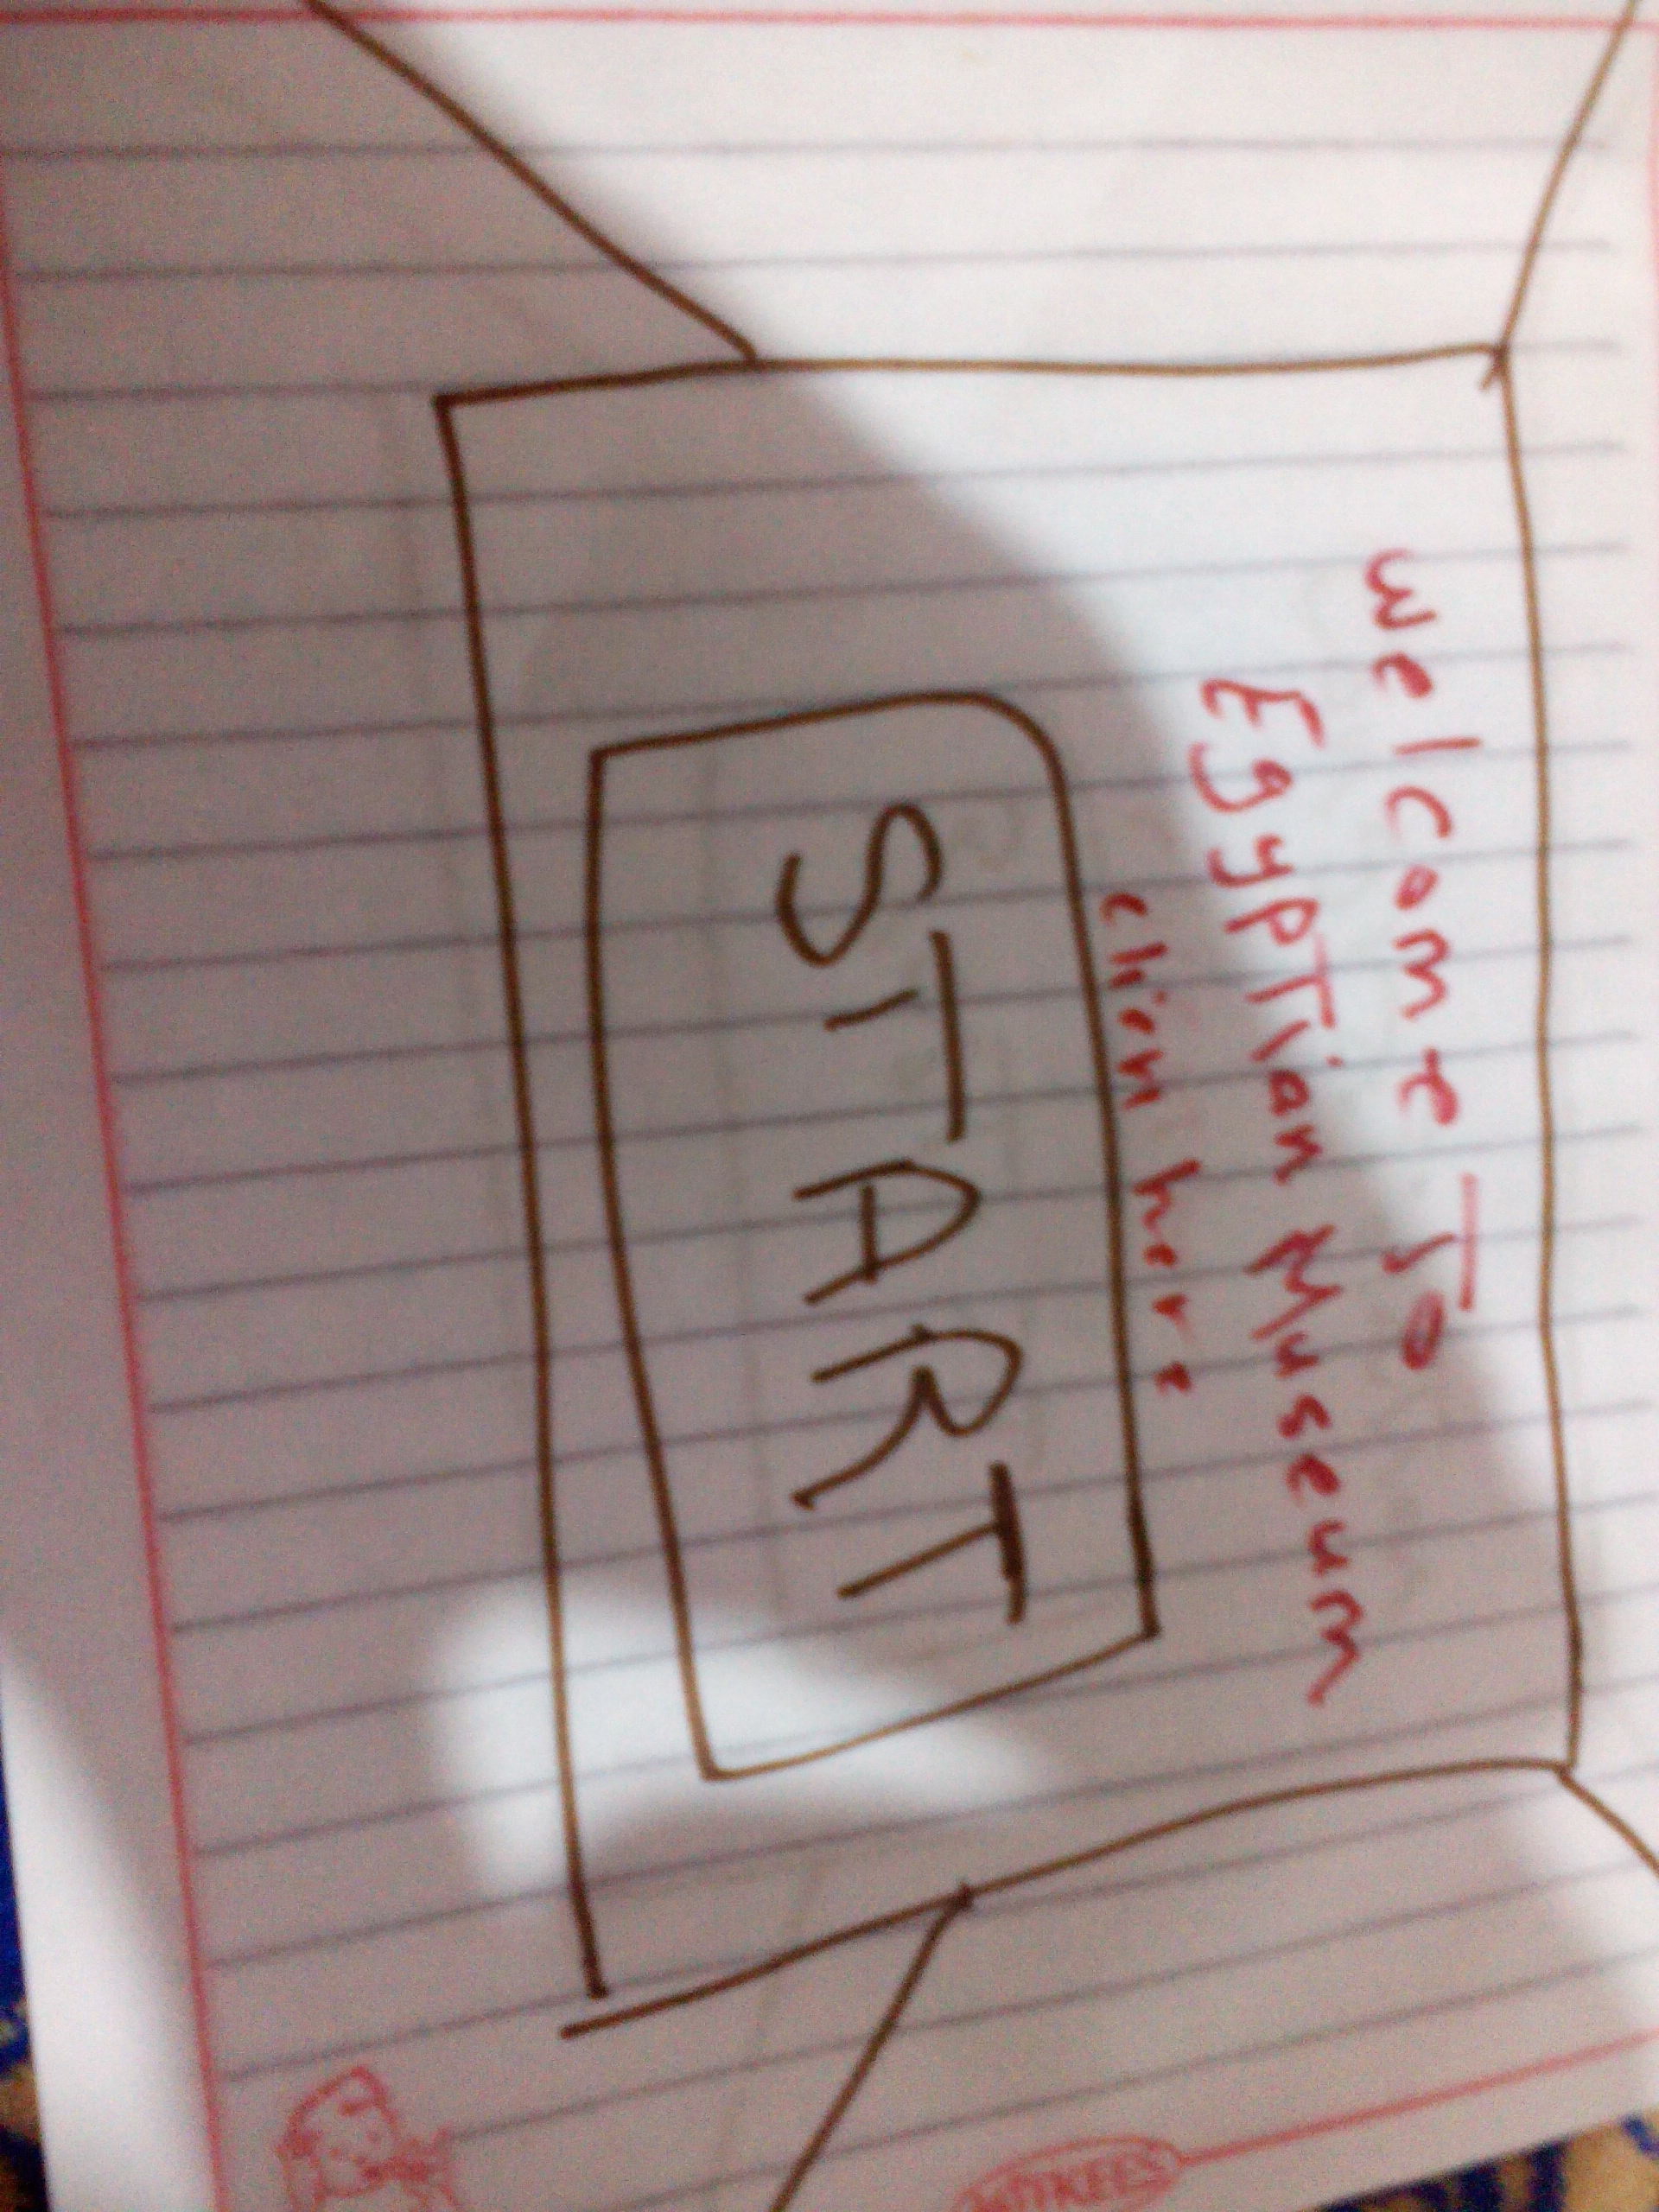 Welcome To
Egyptian Museum
click here
START